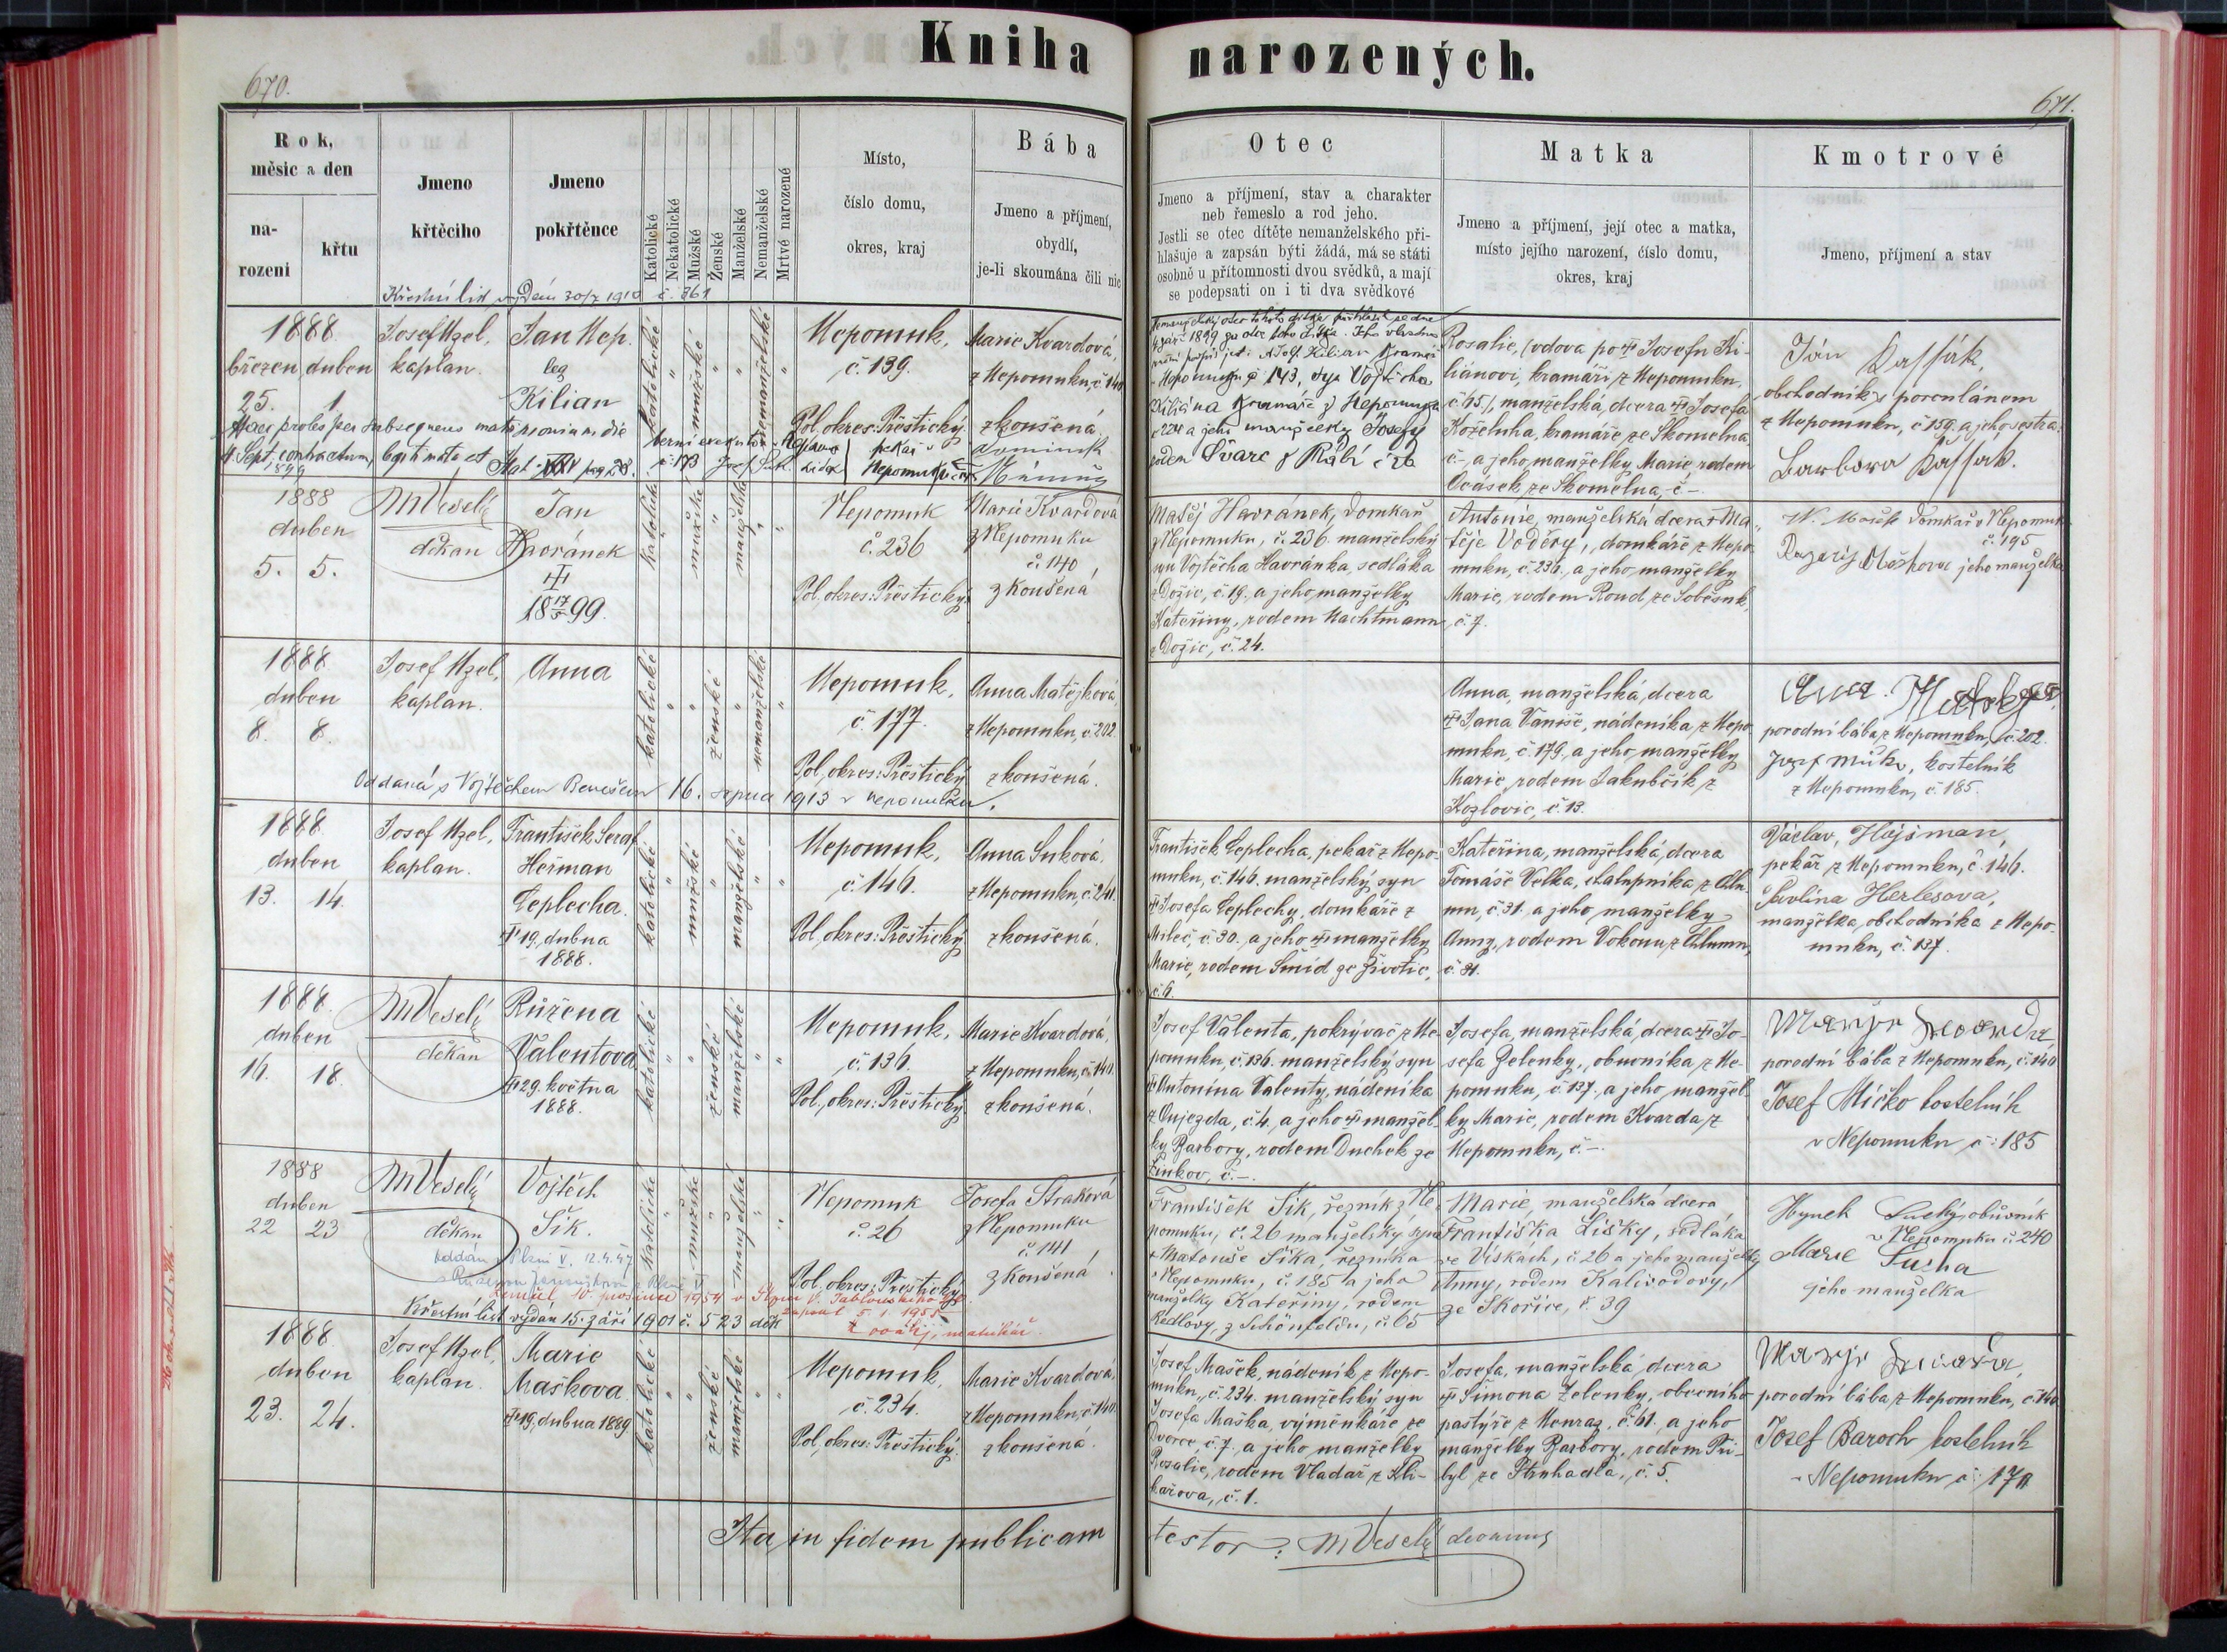 Kniha narozených.
670.
671.
Rok,
měsíc a den
na-
rozeni
křtu
Jmeno
křtěcího
Jmeno
pokřtěnce
Katolické
Nekatolické
Mužské
Ženské
Manželské
Nemanželské
Mrtvé narozené
Místo,
číslo domu,
okres, kraj
Bába
Jmeno a příjmení,
obydlí,
je-li skoumána čili nic
Otec
Jmeno a příjmení, stav a charakter
neb řemeslo a rod jeho.
Jestli se otec dítěte nemanželského při-
hlašuje a zapsán býti žádá, má se státi
osobně u přítomnosti dvou svědků, a mají
se podepsati on i ti dva svědkové
Matka
Jmeno a příjmení, její otec a matka,
místo jejího narození, číslo domu,
okres, kraj
Kmotrové
Jmeno, příjmení a stav
Křestní list Dán 30/7 1910 č. 361
1888.
březen duben
25. 1.
Josef Uzel,
kaplan.
Jan Nep.
leg
Kilian
katolické
mužské
nemanželské
Nepomuk,
č. 139.
Pol. okres: Přeštický
Marie Kvardová,
z Nepomuku, č. 140
zkoušená.
Haec proles per subsequens matrimonium die
4. Sept. 1899 contractum, legitimata est
č. 143, syn Vojtěcha
Kiliána kramáře z Nepomuka
a jeho manželky Josefy
rodem Švarc z Rábí
Rosalie, vdova po ✝ Josefu Ki-
lianovi, kramáři z Nepomuku,
č. 15/, manželská dcera ✝ Josefa
Koželuha, kramáře ze Skomelna
č.-, a jeho manželky Marie rodem
Ocásek ze Skomelna, č-.
Ján Kassák,
obchodník s porculánem
z Nepomuku, č. 159. a jeho sestra:
Barbora Kassák.
1888
duben
5. 5.
M Veselý
děkan
Jan
Havránek
✝
18 17/5 99.
katolické
mužské
manželské
Nepomuk
č. 236
Pol. okres: Přeštický
Marie Kvardová
z Nepomuku
č. 140
zkoušená
Matěj Havránek, domkář
z Nepomuku, č. 236. manželský
syn Vojtěcha Havránka, sedláka
z Dožic, č. 19. a jeho manželky
Kateřiny, rodem Nachtmann
z Dožic, č. 24.
Antonie, manželská dcera ✝ Ma-
těje Voděry, domkáře z Nepo-
muku, č. 236., a jeho manželky
Marie, rodem Roud ze Soběsuk,
č. 7.
domkář v Nepomuk
č. 195
jeho manželka
1888.
duben
8. 8.
Josef Uzel,
kaplan.
Anna
katolické
ženské
nemanželské
Nepomuk,
č. 177.
Pol. okres: Přeštický
Anna Matějková,
z Nepomuku, č. 202
zkoušená.
Oddaná s Vojtěchem Benešem 16. srpna 1913 v Nepomuku.
Anna, manželská dcera
✝ Jana Vaniše, nádeníka z Nepo-
muku, č. 179., a jeho manželky
Marie, rodem Jakubčik z
Kozlovic, č. 13.
porodní bába z Nepomuku, č. 202.
kostelník
z Nepomuku, č. 185.
1888.
duben
13. 14.
Josef Uzel,
kaplan.
František Seraf.
Heřman
Ceplecha.
✝ 19. dubna
1888.
katolické
mužské
manželské
Nepomuk,
č. 146.
Pol. okres: Přeštický
Anna Suková,
z Nepomuku, č. 241.
zkoušená.
František Ceplecha, pekař z Nepo-
muku, č. 146. manželský syn
✝ Josefa Ceplechy, domkáře z
Milеč, č. 30. a jeho ✝ manželky
Marie, rodem Šmíd ze Životic,
č. 6.
Kateřina, manželská dcera
Tomáše Velka, chalupníka z Chlu-
mu, č. 31. a jeho manželky
Anny, rodem Vokoun z Chlumu,
č. 31.
Václav, Hojsman,
pekař z Nepomuku, č. 146.
Pavlína Herlesova,
manželka obchodníka z Nepo-
muku, č. 137.
1888.
duben
16. 18.
M Veselý
děkan
Růžena
Valentova.
✝ 29. května
1888.
katolické
ženské
manželské
Nepomuk,
č. 136.
Pol. okres: Přeštický
Marie Kvardová,
z Nepomuku, č. 140.
zkoušená.
Josef Valenta, pokrývač z Ne-
pomuku, č. 136. manželský syn
✝ Antonína Valenty, nádeníka
z Oujezda, č. 4., a jeho ✝ manžel-
ky Barbory, rodem Duchek ze
Žinkov, č.-.
Josefa, manželská dcera ✝ Jo-
sefa Zelenky, obuvníka, z Ne-
pomuku, č. 137. a jeho manžel-
ky Marie, rodem Kvarda z
Nepomuku, č.-.
Marye Kvarda,
porodní bába z Nepomuku, č. 140
Josef Mičko kostelník
v Nepomuku č: 185
1888
duben
22 23
M Veselý
děkan
Vojtěch
Šik.
katolické
mužské
manželské
Nepomuk
č. 26
Pol. okres: Přeštický
Josefa Straková
z Nepomuku
č. 141
zkoušená
Zemřel 10. prosince 1954 v Plzni
Křestní list vydán 15. září 1901 č. 523 děk
František Šik, řezník z Ne-
pomuku, č. 26 manželský syn
✝ Matouše Šika, řezníka
z Nepomuku, č. 185 a jeho
manželky Kateřiny, rodem
Redlovy, z Schönfeldu, č. 65
Marie, manželská dcera
Františka Lišky, sedláka
ve Vískách, č. 26 a jeho manželky
Anny, rodem Kalivodovy,
ze Skořice, č. 39
Hynek Suchý obůvník
v Nepomuku č. 240
Marie Sucha
jeho manželka
1888.
duben
23. 24.
Josef Uzel,
kaplan.
Marie
Maškova.
✝ 19. dubna 1889.
katolické
ženské
manželské
Nepomuk,
č. 234.
Pol. okres: Přeštický.
Marie Kvardová,
z Nepomuku, č. 140.
zkoušená.
Josef Mašek, nádeník z Nepo-
muku, č. 234. manželský syn
Josefa Maška, výměnkáře, ze
Dvorce, č. 7. a jeho manželky
Rosalie, rodem Vladař z Kli-
kařova, č. 1.
Josefa, manželská dcera
✝ Šimona Zelenky, obecního
pastýře z Neuraz, č. 61. a jeho
manželky Barbory, rodem Při-
byl ze Struhadla, č. 5.
Marye Kvarda,
porodní bába z Nepomuku, č. 140
Josef Baroch kostelník
v Nepomuku č: 170
Ita in fidem publicam
testor: M Veselý decanus